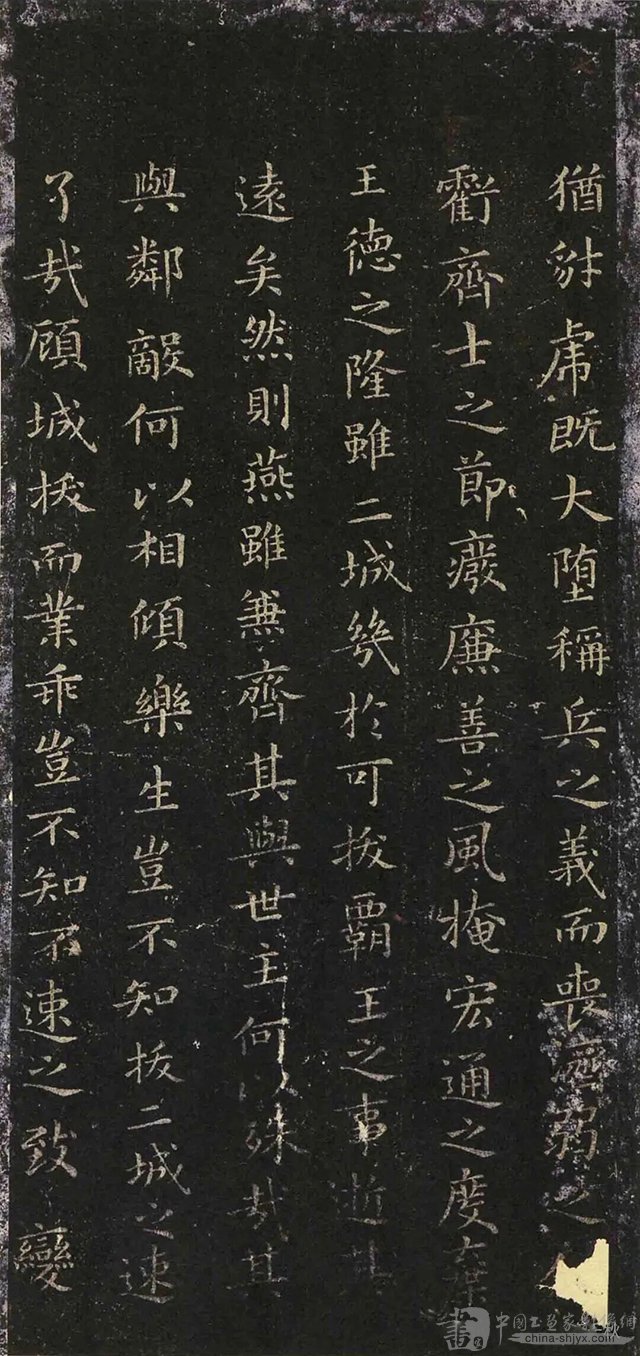 猶豺虎既大堕稱兵之義而喪濟弱之
虧齊士之節癈廉善之風掩宏通之度棄
王德之隆雖二城幾於可拔霸王之事逝其
遠矣然則燕雖兼齊其與世主何以殊哉其
與鄰敵何以相傾樂生豈不知拔二城之速
了哉顧城拔而業乖豈不知不速之致變
書
china-shjyx.com